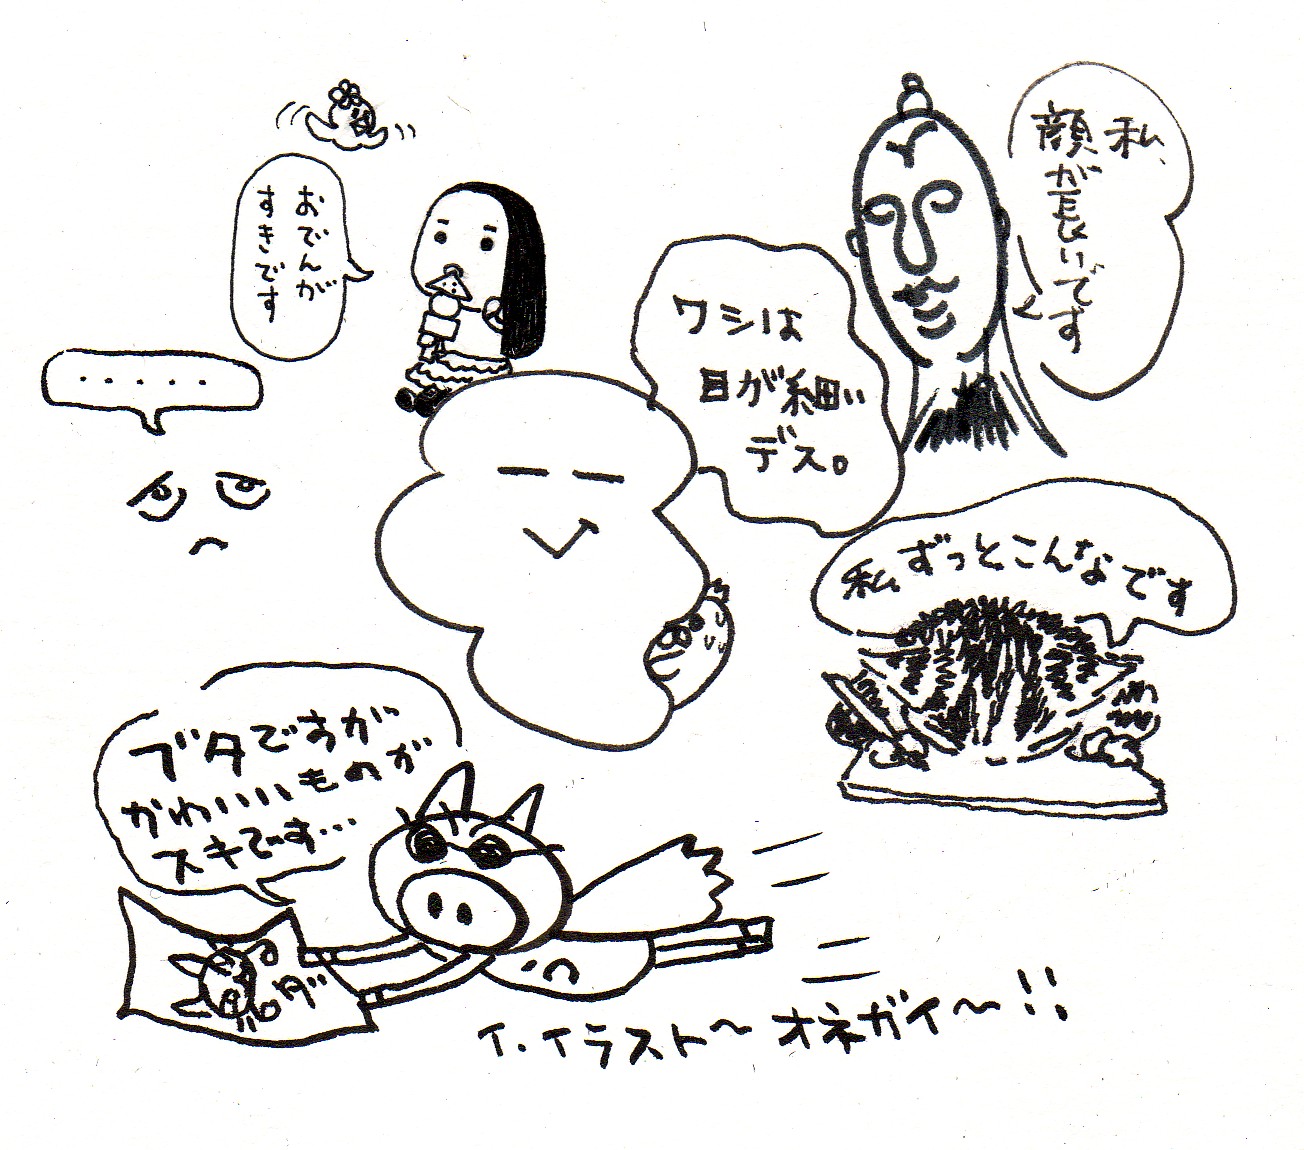 私、
顔が長いです
おでんが
すきです
ワシは
目が細い
デス。
.....
私、ずっとこんなです
ブタですが
かわいいものが
スキです…
イ、イラスト〜 オネガイ〜!!